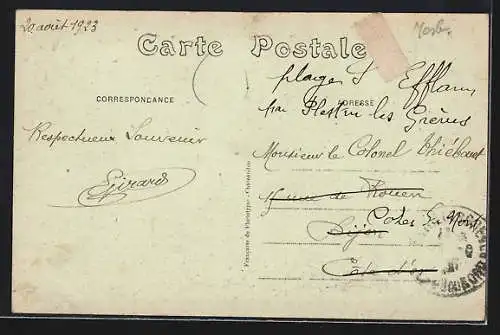 20 août 1923
Carte Postale
plage St Efflam
CORRESPONDANCE
par Plestin les Grèves
ADRESSE
Respectueux Souvenir
Monsieur le Colonel Thiébaut
Girard
rue de Rouen
Dijon
Côtes du Nord
Côte d'or
Française de Phototypie